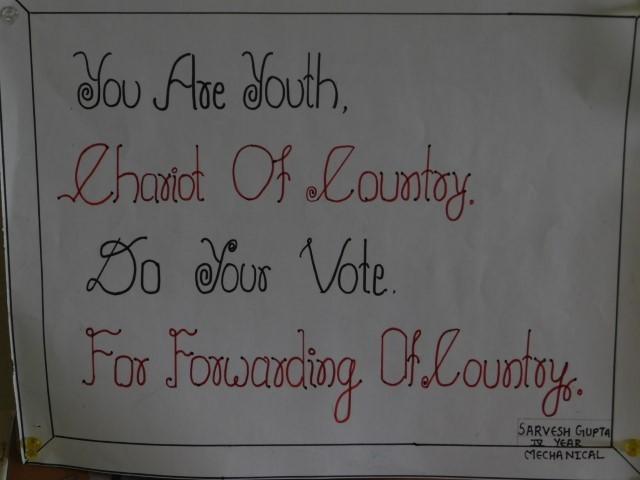 You Are Youth,
Chariot Of Country.
Do Your Vote.
For Forwarding Of Country.
SARVESH GUPTA
IV YEAR
MECHANICAL